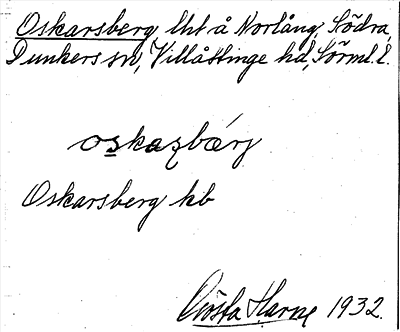 Oskarsberg lht å Norlång, Södra,
Dunkers sn, Villåttinge hd, Sörml. l.
oskaʂbærj
Oskarsberg kb
Gösta Harne 1932.